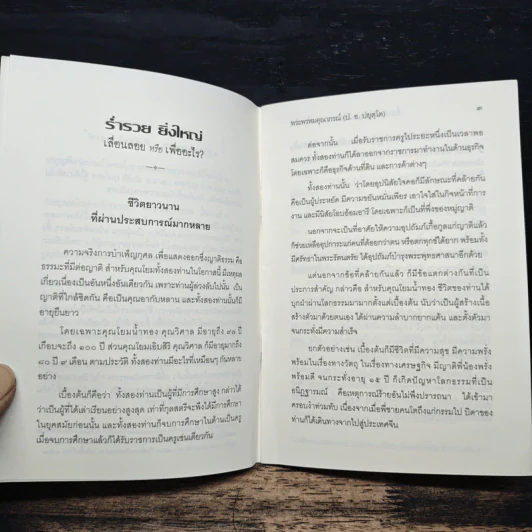 ร่ำรวย ยิ่งใหญ่
เลื่อนลอย หรือ เพื่ออะไร?
ชีวิตยาวนาน
ที่ผ่านประสบการณ์มากหลาย
ความจริงการบำเพ็ญกุศล เพื่อแสดงออกซึ่งญาติธรรม คือ
ธรรมะที่มีต่อญาติ สำหรับคุณโยมทั้งสองท่านในโอกาสนี้ มีเหตุผล
เกี่ยวเนื่องเป็นอันหนึ่งอันเดียวกัน เพราะท่านผู้ล่วงลับไปนั้น เป็น
ญาติที่ใกล้ชิดกัน คือเป็นคุณอากับหลาน และทั้งสองท่านนั้นก็มี
อายุยืนยาว
โดยเฉพาะคุณโยมน้ำทอง คุณวิศาล มีอายุถึง ๙๙ ปี
เกือบจะถึง ๑๐๐ ปี ส่วนคุณโยมเอิบสิริ คุณวิศาล ก็มีอายุมากถึง
๘๐ ปี ๙ เดือน ตามประวัติ ทั้งสองท่านมีอะไรที่เหมือนๆ กันหลาย
อย่าง
เบื้องต้นก็คือว่า ทั้งสองท่านเป็นผู้ที่มีการศึกษาสูง กล่าวได้
ว่าเป็นผู้ที่ได้เล่าเรียนอย่างสูงสุด เท่าที่กุลสตรีจะพึงได้มีการศึกษา
ในยุคสมัยก่อนนั้น และทั้งสองท่านก็จบการศึกษาในด้านเป็นครู
เมื่อจบการศึกษาแล้วก็ได้รับราชการเป็นครูเช่นเดียวกัน
พระพรหมคุณาภรณ์ (ป. อ. ปยุตฺโต)
๓
ต่อจากนั้น เมื่อรับราชการครูไประยะหนึ่งเป็นเวลาพอ
สมควร ทั้งสองท่านก็ได้ลาออกจากราชการมาทำงานในด้านธุรกิจ
โดยเฉพาะก็คือธุรกิจด้านที่ดิน และการค้าต่างๆ
ทั้งสองท่านนั้น ว่าโดยอุปนิสัยใจคอก็มีลักษณะที่คล้ายกัน
คือเป็นผู้ประหยัด มีความขยันหมั่นเพียร เอาใจใส่ในกิจหน้าที่การ
งาน และมีนิสัยโอบอ้อมอารี โดยเฉพาะก็เป็นที่พึ่งของหมู่ญาติ
นอกจากจะเป็นที่อาศัยให้ความอุปถัมภ์เกื้อกูลแก่ญาติแล้ว
ก็ช่วยเหลืออุปการะแก่คนที่ด้อยกว่าตน หรือตกทุกข์ได้ยาก พร้อมทั้ง
มีศรัทธาในพระรัตนตรัย ได้อุปถัมภ์บำรุงพระพุทธศาสนาอีกด้วย
แต่นอกจากข้อที่คล้ายกันแล้ว ก็มีข้อแตกต่างกันที่เป็น
ประการสำคัญ กล่าวคือ สำหรับคุณโยมน้ำทอง ชีวิตของท่านได้
บุกฝ่าผ่านโลกธรรมมามากตั้งแต่เบื้องต้น นับว่าเป็นผู้สร้างเนื้อ
สร้างตัวมาด้วยตนเอง ได้ผ่านความลำบากยากแค้น และตั้งตัวมา
จนกระทั่งมีความสำเร็จ
ยกตัวอย่างเช่น เบื้องต้นก็มีชีวิตที่มีความสุข มีความพรั่ง
พร้อมในเรื่องทางวัตถุ ในเรื่องทางเศรษฐกิจ มีญาติพี่น้องพรั่ง
พร้อมดี จนกระทั่งอายุ ๑๕ ปี ก็เกิดปัญหาโลกธรรมที่เป็น
อนิฏฐารมณ์ คือเหตุการณ์ร้ายอันไม่พึงปรารถนา ได้เข้ามา
ครอบงำท่วมทับ เนื่องจากเมื่อพี่ชายคนโตถึงแก่กรรมไป บิดาของ
ท่านก็ได้เดินทางจากไปสู่ประเทศจีน